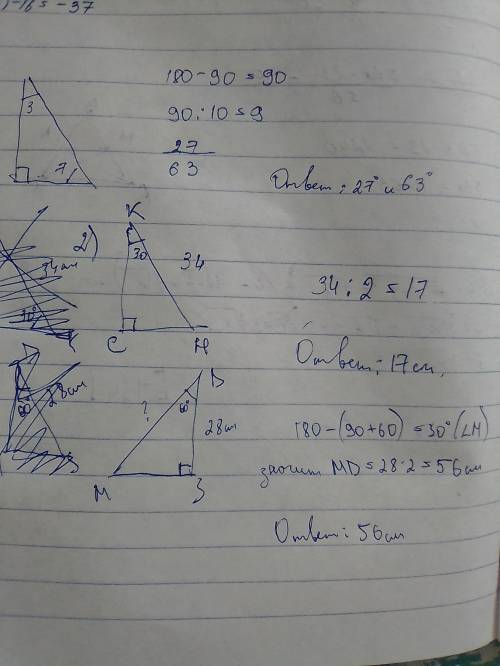 )-16 = -37
180 - 90 = 90
3
90 : 10 = 9
7
27
63
Ответ: 27° и 63°
2)
К
30
34
34 см
34 : 2 = 17
С
Н
Ответ: 17 см.
28 см
60°
D
?
60°
28 см
М
З
180 - (90 + 60) = 30° (∠М)
значит MD = 28 · 2 = 56 см
Ответ: 56 см